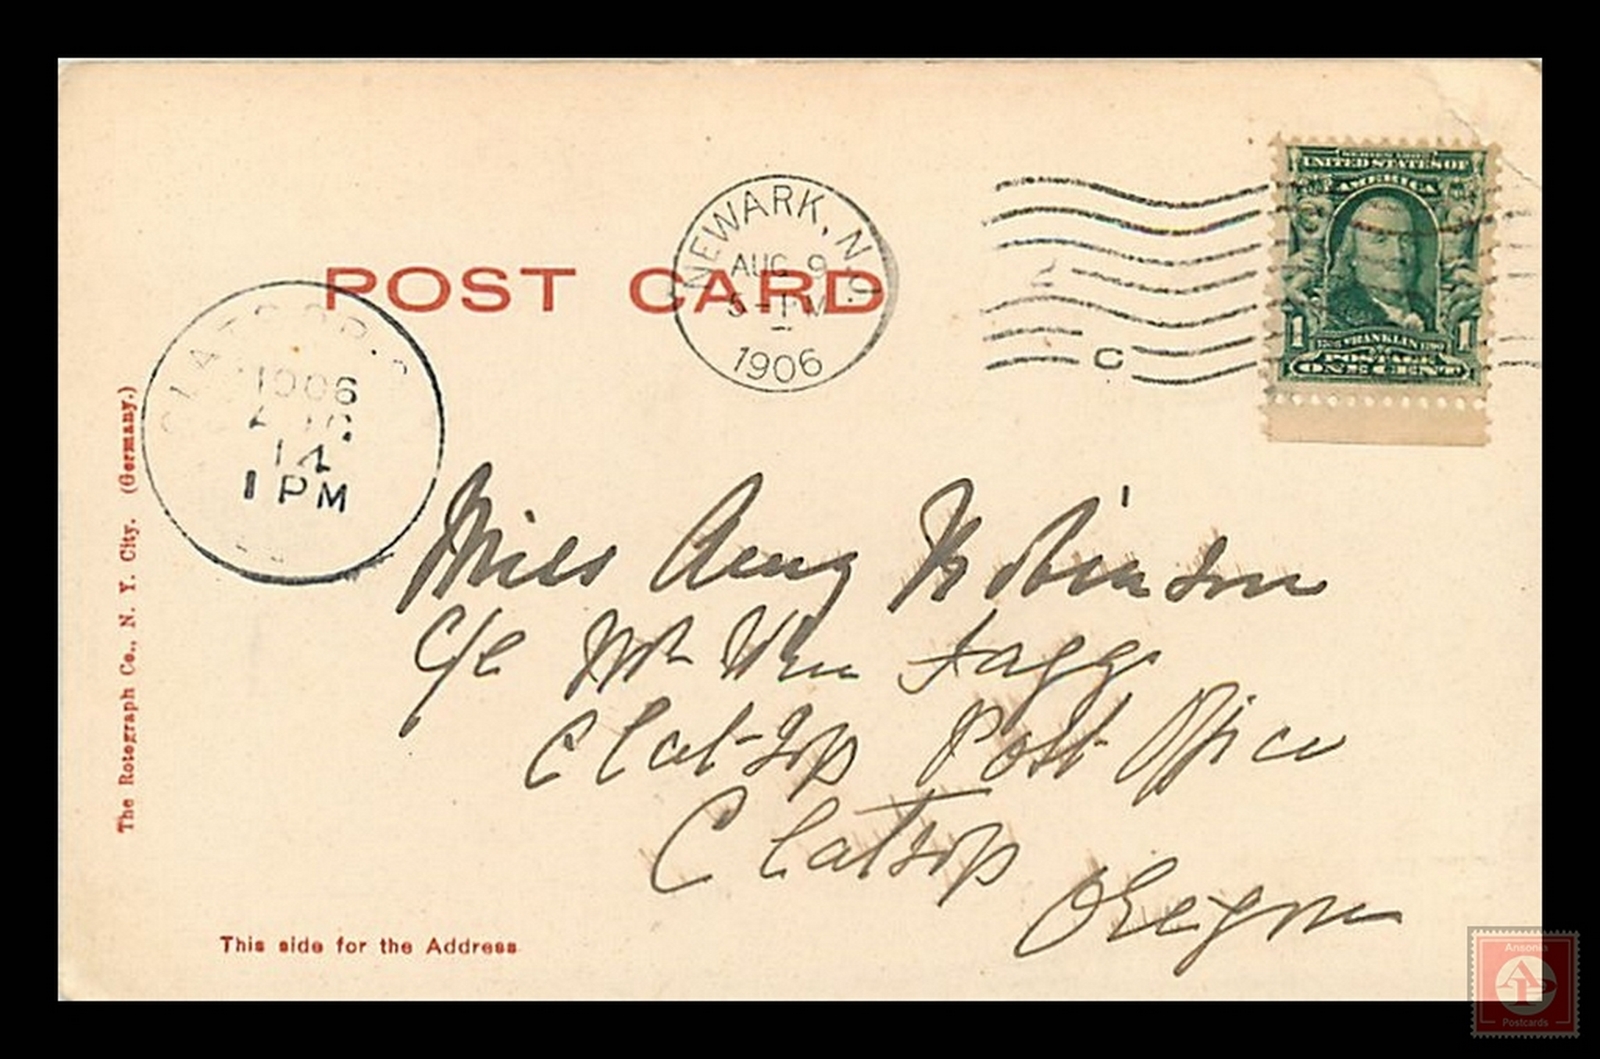 POST CARD
NEWARK, N.J.
AUG 9
5-PM
1906
C
SERIES 1902
UNITED STATES OF
AMERICA
1 FRANKLIN 1
POSTAGE
ONE CENT
CLATSOP,
1906
AUG
14
1 PM
Miss Amy Robinson
c/o Mr Wm Fagg
Clatsop Post Office
Clatsop
Oregon
The Rotograph Co., N. Y. City. (Germany.)
This side for the Address
Ansonia
AP
Postcards